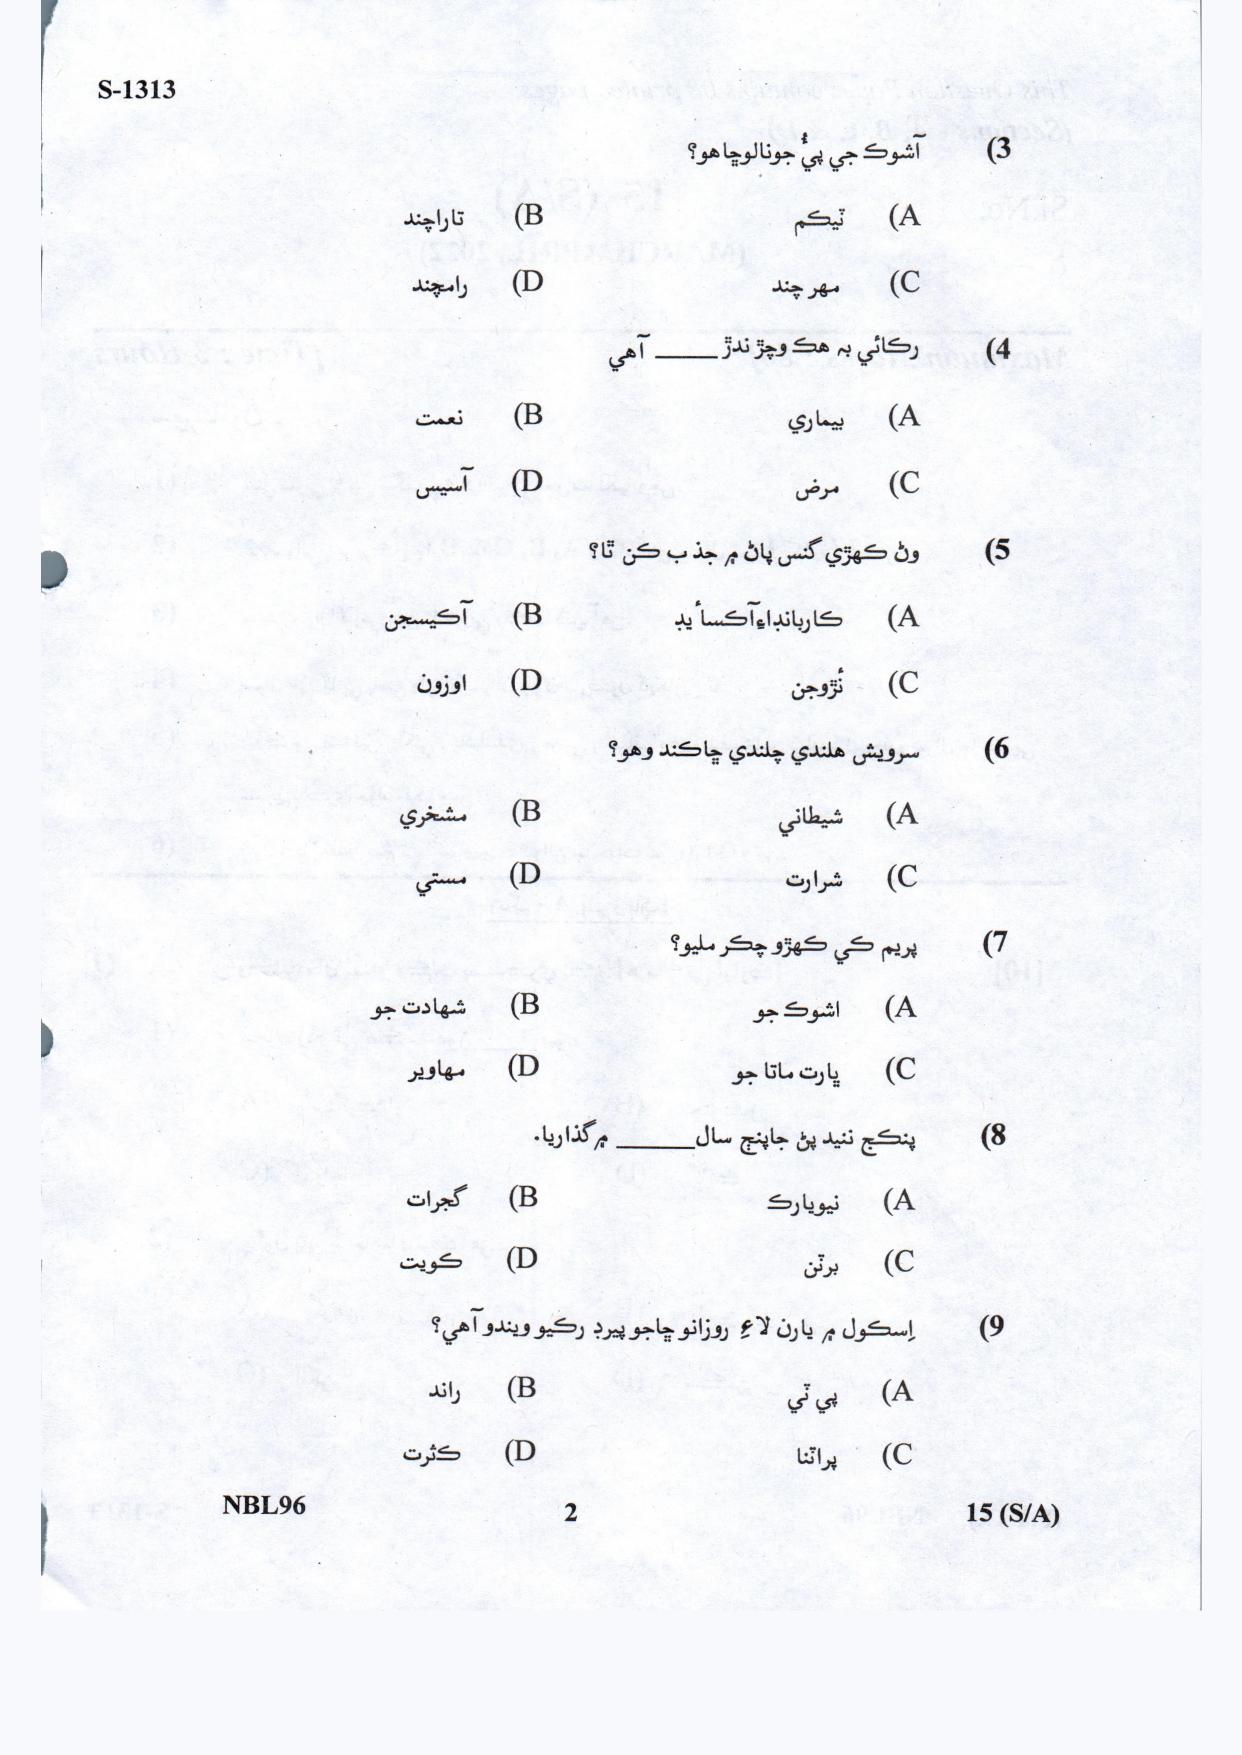 S-1313
(3 آشوڪ جي پيُ جونالوڇاهو؟
(A ٽيڪم (B تاراچند
(C مهرچند (D رامچند
(4 رڪائي بہ هڪ وچڙندڙ _____ آهي
(A بيماري (B نعمت
(C مرض (D آسيس
(5 وڻ ڪهڙي گئس پاڻ ۾ جذب ڪن ٿا؟
(A ڪاربانڊاءِآڪسائيڊ (B آڪيسجن
(C نُڙوجن (D اوزون
(6 سرويش هلندي چلندي ڇاڪندو هو؟
(A شيطاني (B مشخري
(C شرارت (D مستي
(7 پريم کي ڪهڙو چڪر مليو؟
(A اشوڪ جو (B شهادت جو
(C ڀارت ماتا جو (D مهاوير
(8 پنڪج ننڍپڻ جاپنج سال______ ۾گذاريا.
(A نيويارڪ (B گجرات
(C برٽن (D ڪويت
(9 اِسڪول ۾ ٻارن لاءِ روزانو ڇاجو پيرڊ رکيو ويندو آهي؟
(A پي ٽي (B راند
(C پراٿنا (D ڪثرت
NBL96 2 15 (S/A)